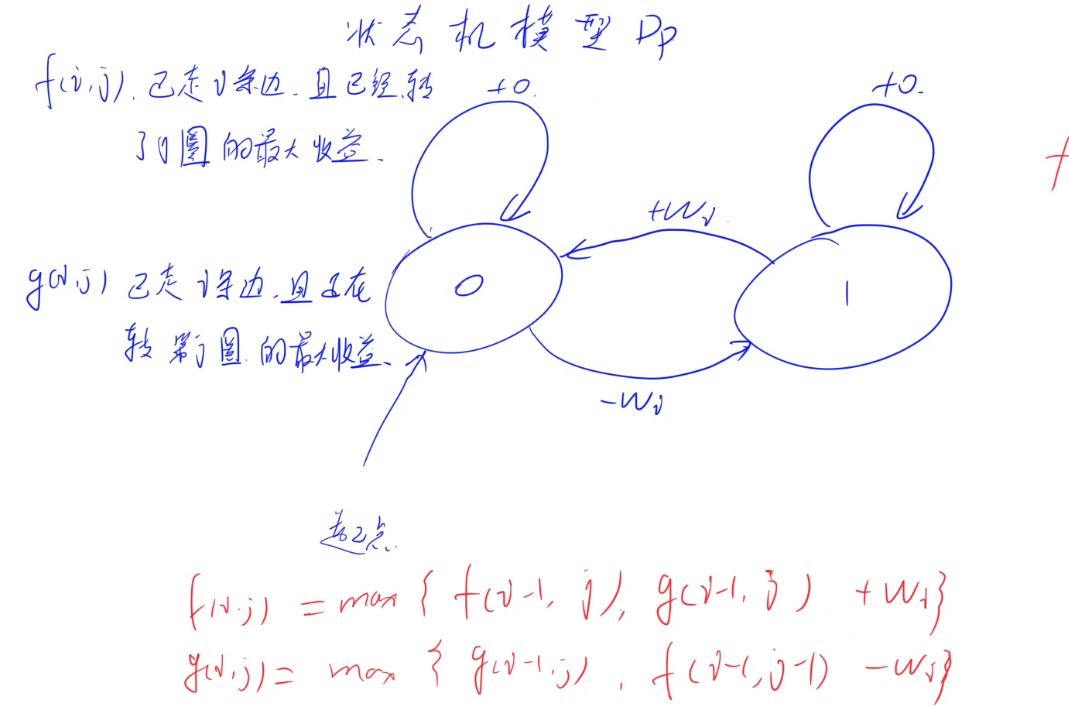 状态机模型 DP
f(i,j) 已走i条边.且已经转
了j圈的最大收益.
+0.
+0.
+Wi
g(i,j) 已走i条边.且正在
转第j圈.的最大收益.
0
1
-Wi
起点.
f(i,j) = max { f(i-1, j), g(i-1, j) + Wi}
g(i,j) = max { g(i-1,j), f(i-1,j-1) - Wi}